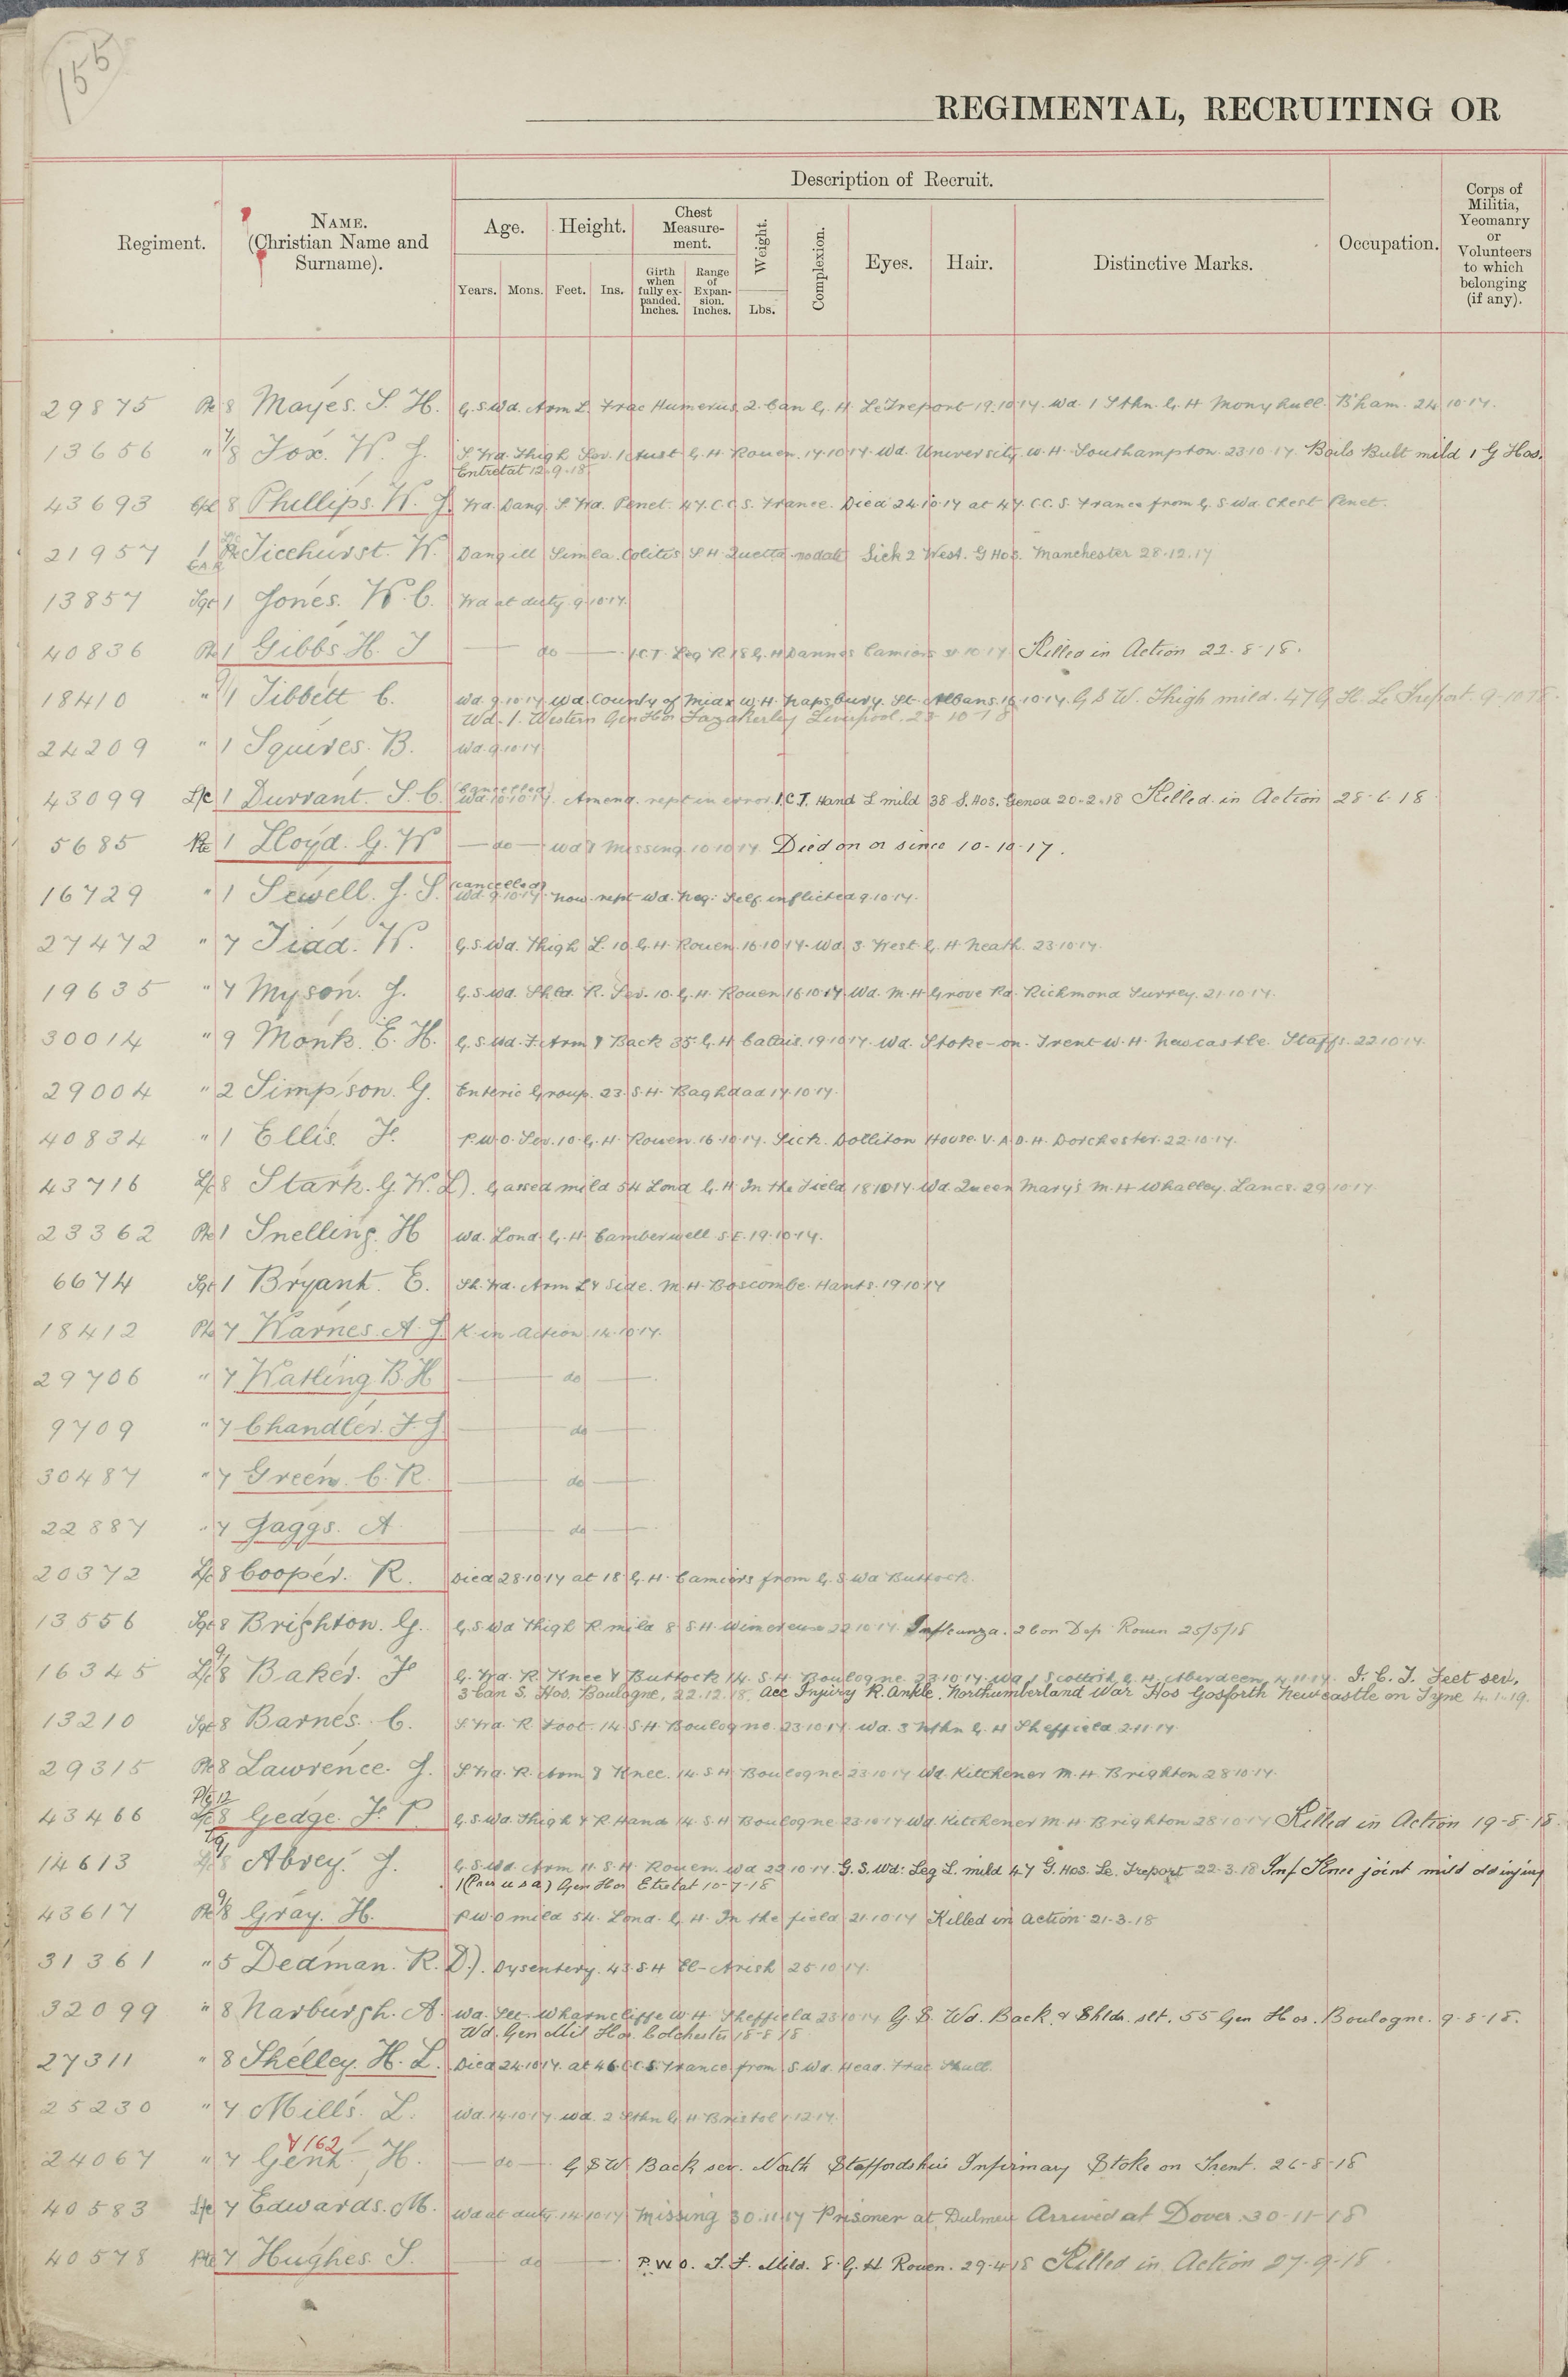 155
REGIMENTAL, RECRUITING OR
Description of Recruit.
Regiment.
NAME.
(Christian Name and
Surname).
Age.
Height.
Chest
Measure-
ment.
Weight.
Complexion.
Eyes.
Hair.
Distinctive Marks.
Occupation.
Corps of
Militia,
Yeomanry
or
Volunteers
to which
belonging
(if any).
Years.
Mons.
Feet.
Ins.
Girth
when
fully ex-
panded.
Inches.
Range
of
Expan-
sion.
Inches.
Lbs.
29875 Pte 8 Mayes. S. H. G.S.Wd. Arm L. Frac Humerus. 2. Can G. H. Le Treport 19.10.17. Wd. 1 Sthn. G. H Monyhull. B'ham. 24.10.17.
13656 " 7/8 Fox. W. J. S. Wd. Thigh Sev. 1 Aust G. H. Rouen. 17.10.17. Wd. University W. H. Southampton. 23.10.17. Boils Butt mild 1 G Hos.
Entretat 12.9.18
43693 Cpl 8 Phillips. W. J. Wd. Dang. S. Wd. Penet. 47. C.C.S. France. Died 24.10.17 at 47. C.C.S. France from G. S. Wd. Chest Penet.
21957 1 Pte Ticehurst. W. Dang ill Simla. Colitis S H Quetta no date Sick 2 West. G Hos. Manchester 28.12.17
13857 Sgt 1 Jones. W. C. Wd at duty. 9.10.17.
40836 Pte 1 Gibbs H. J — do — I.C.T. Leg R 18 G. H Dannes Camiers 31.10.17 Killed in Action 22.8.18.
18410 " 9/1 Tibbett C. Wd. 9.10.17 Wd. County of Midx W. H. Napsbury. St. Albans. 16.10.17. G S W. Thigh mild. 47 G. H. Le Treport. 9-10.18
Wd. 1. Western Gen Hos Fazakerley Liverpool. 23.10.18
24209 " 1 Squires. B. Wd. 9.10.17
43099 L/c 1 Durrant. S. C. (Cancelled)
Wd. 10.10.17. Amend. rept in error. I.C.T. Hand L mild 38 S. Hos. Genoa 20-2-18 Killed in Action 28-6-18
5685 Pte 1 Lloyd. G. W — do — Wd & Missing 10.10.17. Died on or since 10-10-17.
16729 " 1 Sewell. J. S. (Cancelled)
Wd. 9.10.17. now rept Wd. Neg: Self inflicted 9.10.17.
27472 " 7 Tiad. W. G.S.Wd. Thigh L. 10. G. H. Rouen. 16.10.17. Wd 3. West G. H Neath. 23.10.17.
19635 " 7 Myson. J. G.S.Wd. Shld R. Sev. 10. G. H. Rouen 16.10.17. Wd. M. H Grove Rd. Richmond Surrey. 21.10.17.
30014 " 9 Monk. E. H. G. S. Wd. F. Arm & Back 35. G. H Calais. 19.10.17. Wd. Stoke-on-Trent W. H. Newcastle. Staffs. 22.10.17.
29004 " 2 Simpson. G. Enteric Group. 23. S. H. Baghdad 17.10.17.
40834 " 1 Ellis. F. P. U. O. Sev. 10. G. H. Rouen. 16.10.17. Sick. Dolliton House. V. A. D. H. Dorchester. 22.10.17.
43716 L/c 8 Stark. G. W. L). Gassed mild 54 Lond G. H In the Field 18.10.17. Wd. Queen Mary's M. H Whalley. Lancs. 29.10.17.
23362 Pte 1 Snelling. H Wd. Lond. G. H. Camberwell. S. E. 19.10.17.
6674 Sgt 1 Bryant. E. Sh. Wd. Arm L & Side. M. H. Boscombe. Hants. 19.10.17
18412 Pte 7 Warnes. A. J. K. in action 14.10.17.
29706 " 7 Watling B. H — do —
9709 " 7 Chandler. F. J. — do —
30487 " 7 Green. C. R. — do —
22887 " 7 Jaggs. A. — do —
20372 L/c 8 Cooper. R. Died 28.10.17 at 18 G. H. Camiers from G. S Wd Buttock.
13556 Sgt 8 Brighton. G. G. S Wd Thigh R mild 8 S. H. Wimereux 22.10.17. Influenza. 2 Con Dep Rouen 25/5/18
16345 L/c 9/8 Baker. F G. Wd. R. Knee & Buttock 14. S. H. Boulogne. 23.10.17. Wd. 1 Scottish G. H. Aberdeen 4.11.17. I. C. T. Feet sev.
3 Can S. Hos. Boulogne. 22.12.18. Acc Injury R. Ankle. Northumberland War Hos Gosforth Newcastle on Tyne 4.1.19.
13210 Sgt 8 Barnes. C. S. Wd. R Foot. 14. S. H. Boulogne. 23.10.17. Wd. 3 Nthn G. H Sheffield. 2.11.17.
29315 Pte 8 Lawrence. J. S. Wd. R. Arm & Knee. 14. S. H Boulogne 23.10.17 Wd. Kitchener M. H. Brighton 28.10.17.
43466 L/c 8 Gedge. F. P. G. S. Wd. Thigh & R Hand 14. S. H Boulogne 23.10.17 Wd Kitchener M. H. Brighton 28.10.17 Killed in Action 19-8-18
14613 Abrey. J. G. S. Wd. Arm 11. S. H. Rouen. Wd 22.10.17. G. S. Wd: Leg L. mild 47 G. Hos. Le. Treport 22-3-18 Inf Knee joint mild old injury
1 (Pres U S A) Gen Hos Etretat 10-7-18
43617 Pte 9/8 Gray. H. P U O mild 54. Lond. G. H. In the field 21.10.17 Killed in action 21-3-18
31361 " 5 Dedman. R. D). Dysentery. 43. S. H El-Arish 25.10.17.
32099 " 8 Narburgh. A. Wd. Sec. Wharncliffe W. H Sheffield 23.10.17 G. S. Wd. Back & Shldr. slt. 55 Gen Hos. Boulogne. 9-8-18.
Wd. Gen Mil Hos. Colchester 18-8-18
27311 " 8 Shelley. H. L. Died 24.10.17. at 46. C. C. S. France from S. Wd. Head. Frac Skull.
25230 " 7 Mills. L. Wd. 14.10.17. Wd. 2 Sthn G H Bristol 1.12.17
7/162
24067 " 7 Gent. H. — do — G S W Back sev. North Staffordshire Infirmary Stoke on Trent. 26-8-18
40583 L/c 7 Edwards. M. Wd at duty. 14.10.17 Missing 30.11.17 Prisoner at Dulmen Arrived at Dover 30-11-18
40578 Pte 7 Hughes. S. — do — P. U O. T. F. Mild. 8. G. H Rouen. 29-4-18 Killed in Action 27-9-18.